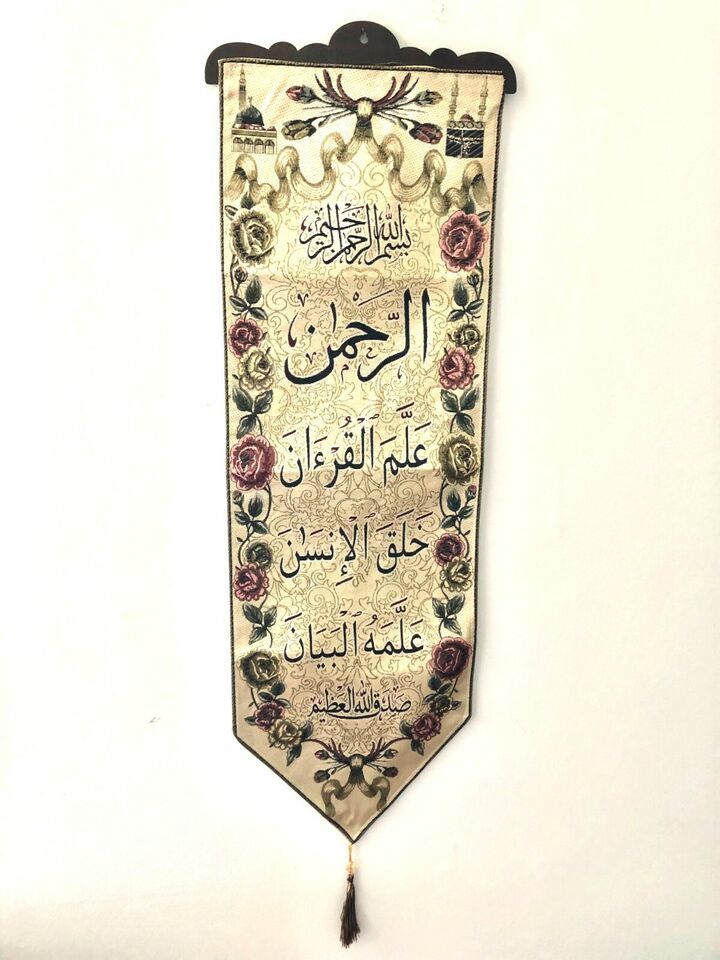 بسم الله الرحمن الرحيم
الرَّحْمَٰن
عَلَّمَ ٱلْقُرْءَانَ
خَلَقَ ٱلْإِنسَٰنَ
عَلَّمَهُ ٱلْبَيَانَ
صدق الله العظيم